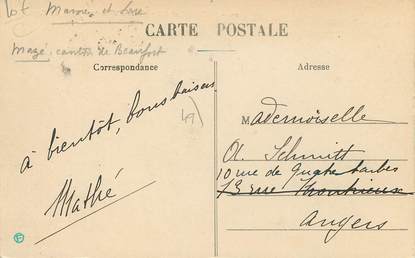 Lot Maine et Loire
CARTE POSTALE
Mazé canton de Beaufort
Correspondance
Adresse
à bientôt, bons baisers
Mathé
49
Mademoiselle
A. Schmitt
10 rue de Quatre barbes
13 rue
Angers